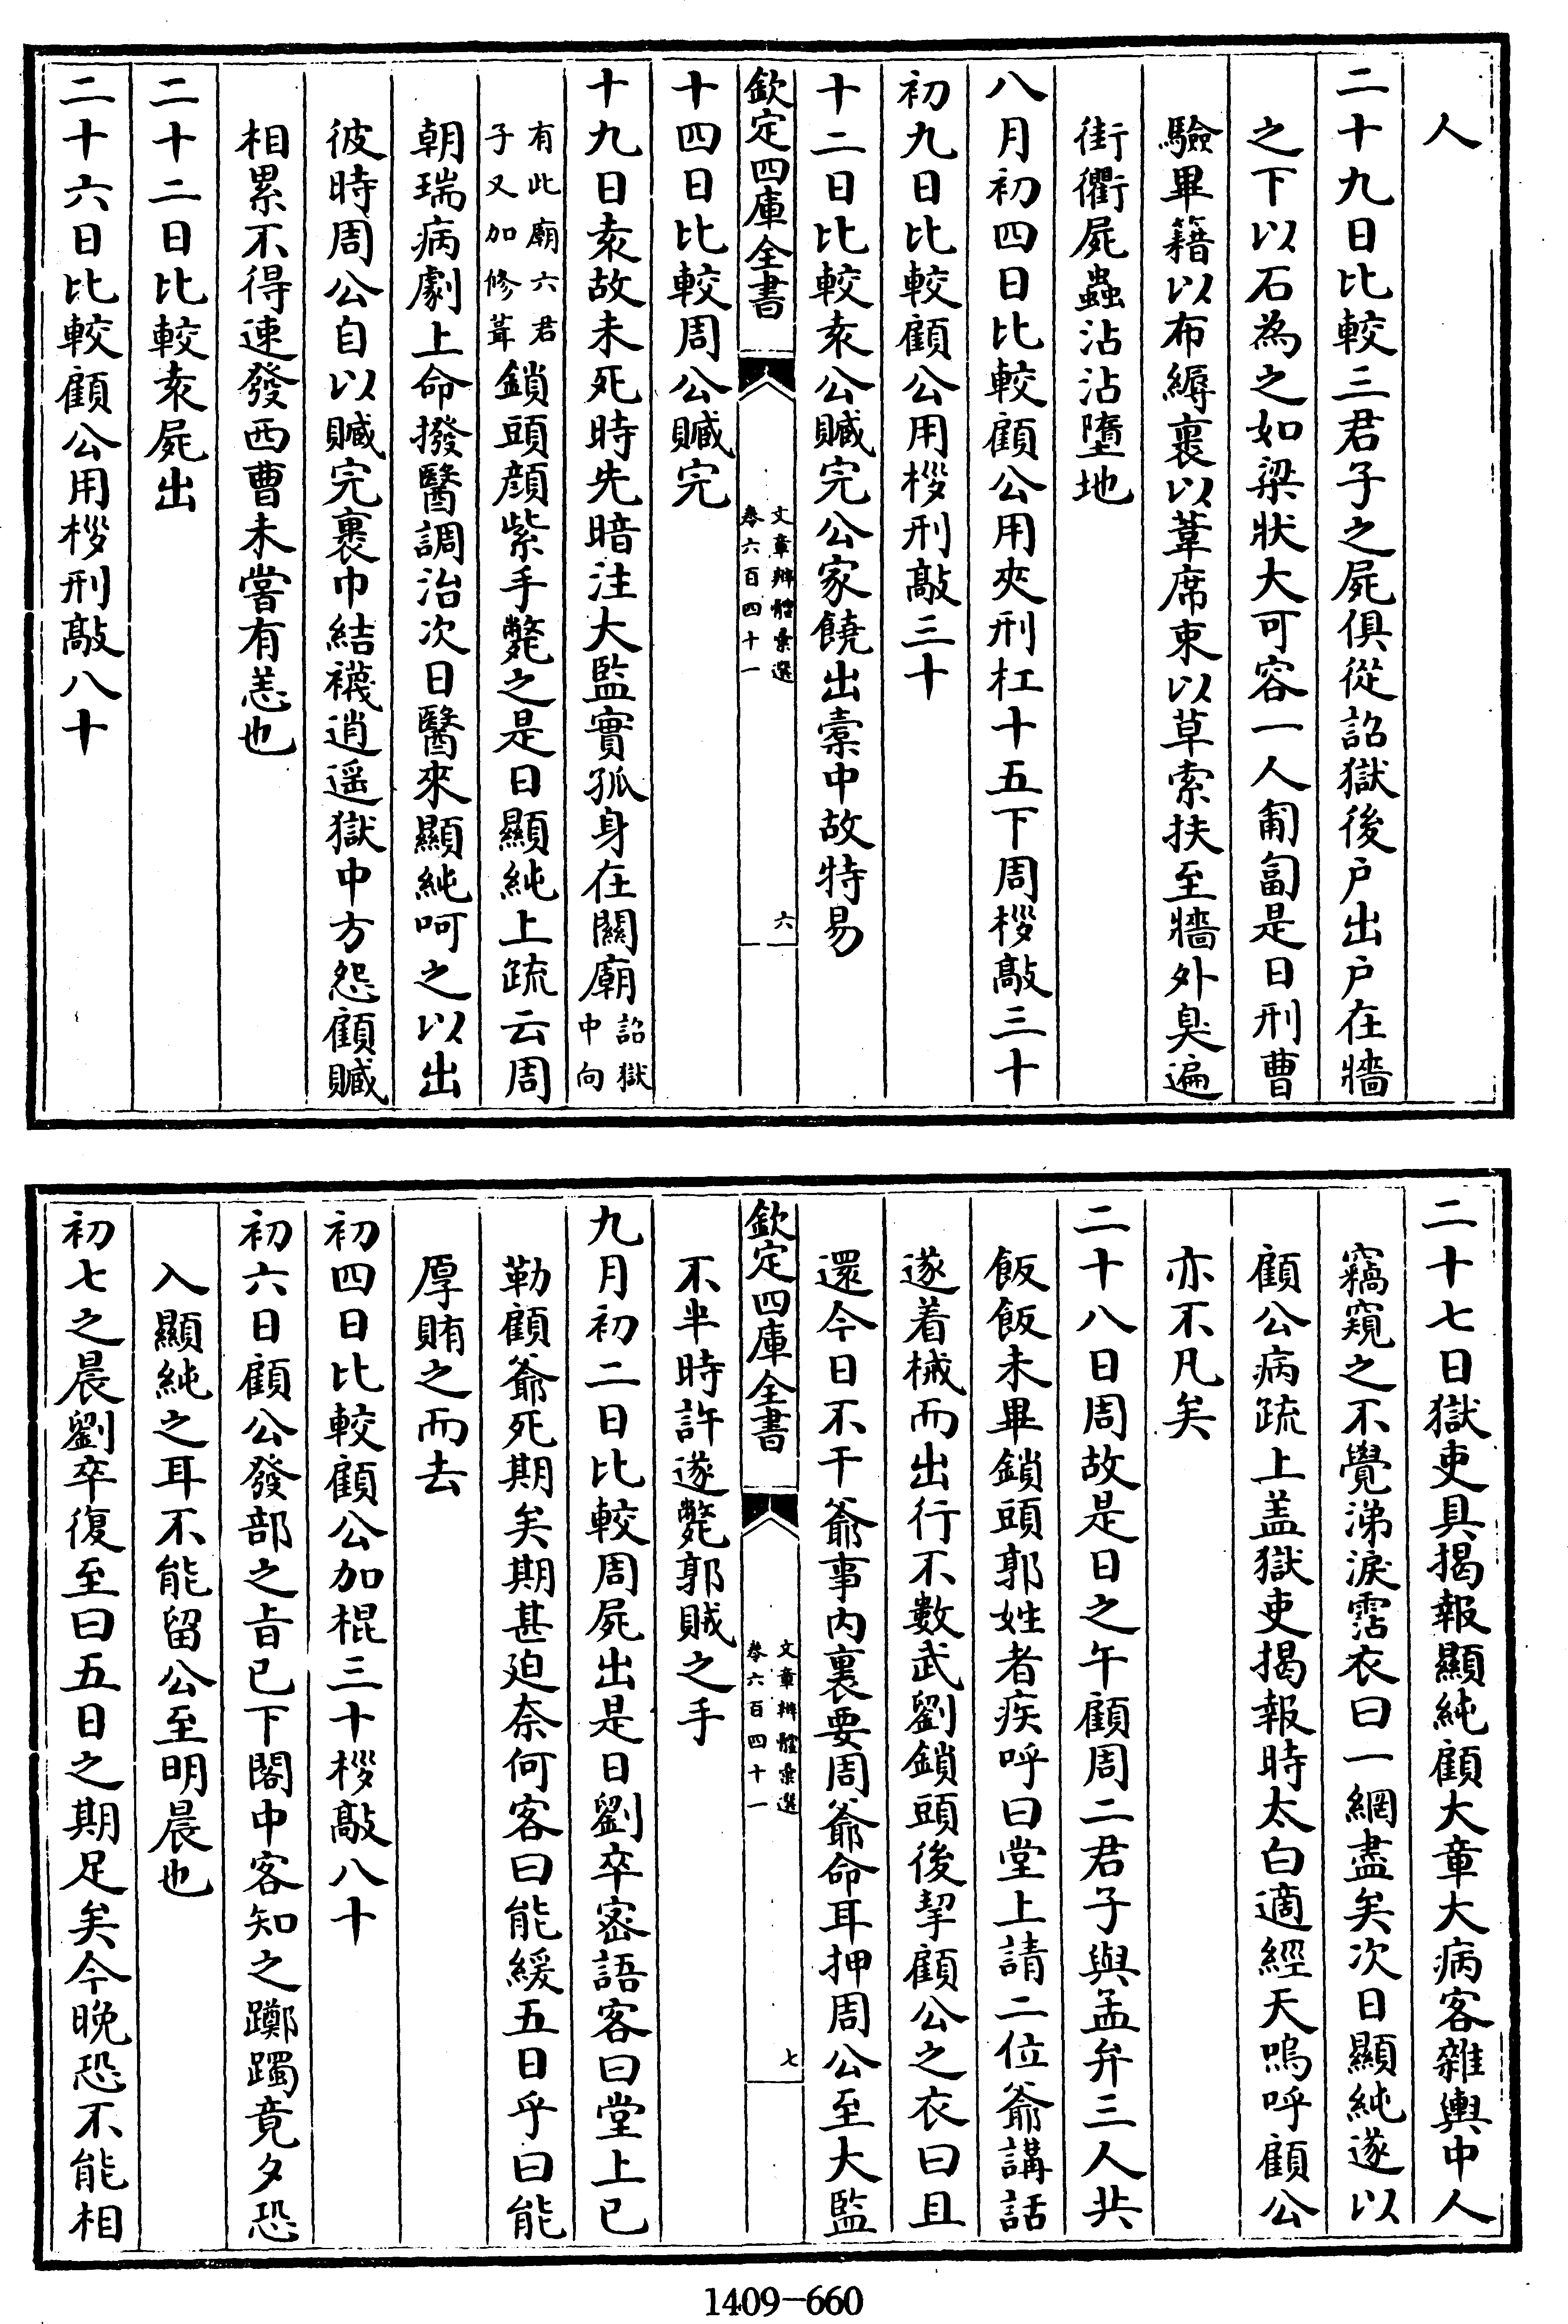 人
二十九日比較三君子之屍俱從詔獄後户出户在牆
之下以石為之如梁狀大可容一人匍匐是日刑曹
驗畢籍以布縟裹以葦席束以草索扶至牆外臭遍
街衢屍蟲沾沾墮地
八月初四日比較顧公用夾刑杠十五下周桚敲三十
初九日比較顧公用桚刑敲三十
十二日比較袁公贓完公家饒出橐中故特易
欽定四庫全書
文章辨體彙選
卷六百四十一
六
十四日比較周公贓完
十九日袁故未死時先暗注大監實孤身在關廟詔獄中向
有此廟六君子又加修葺鎖頭顔紫手斃之是日顯純上疏云周
朝瑞病劇上命撥醫調治次日醫來顯純呵之以出
彼時周公自以贓完裹巾結襪逍遥獄中方怨顧贓
相累不得速發西曹未嘗有恙也
二十二日比較袁屍出
二十六日比較顧公用桚刑敲八十
二十七日獄吏具揭報顯純顧大章大病客雜輿中人
竊窺之不覺涕淚霑衣曰一網盡矣次日顯純遂以
顧公病疏上盖獄吏揭報時太白適經天嗚呼顧公
亦不凡矣
二十八日周故是日之午顧周二君子與孟弁三人共
飯飯未畢鎖頭郭姓者疾呼曰堂上請二位爺講話
遂着械而出行不數武劉鎖頭後挈顧公之衣曰且
還今日不干爺事内裏要周爺命耳押周公至大監
欽定四庫全書
文章辨體彙選
卷六百四十一
七
不半時許遂斃郭賊之手
九月初二日比較周屍出是日劉卒密語客曰堂上已
勒顧爺死期矣期甚廹奈何客曰能緩五日乎曰能
厚賄之而去
初四日比較顧公加棍三十桚敲八十
初六日顧公發部之旨已下閣中客知之躑躅竟夕恐
入顯純之耳不能留公至明晨也
初七之晨劉卒復至曰五日之期足矣今晚恐不能相
1409-660